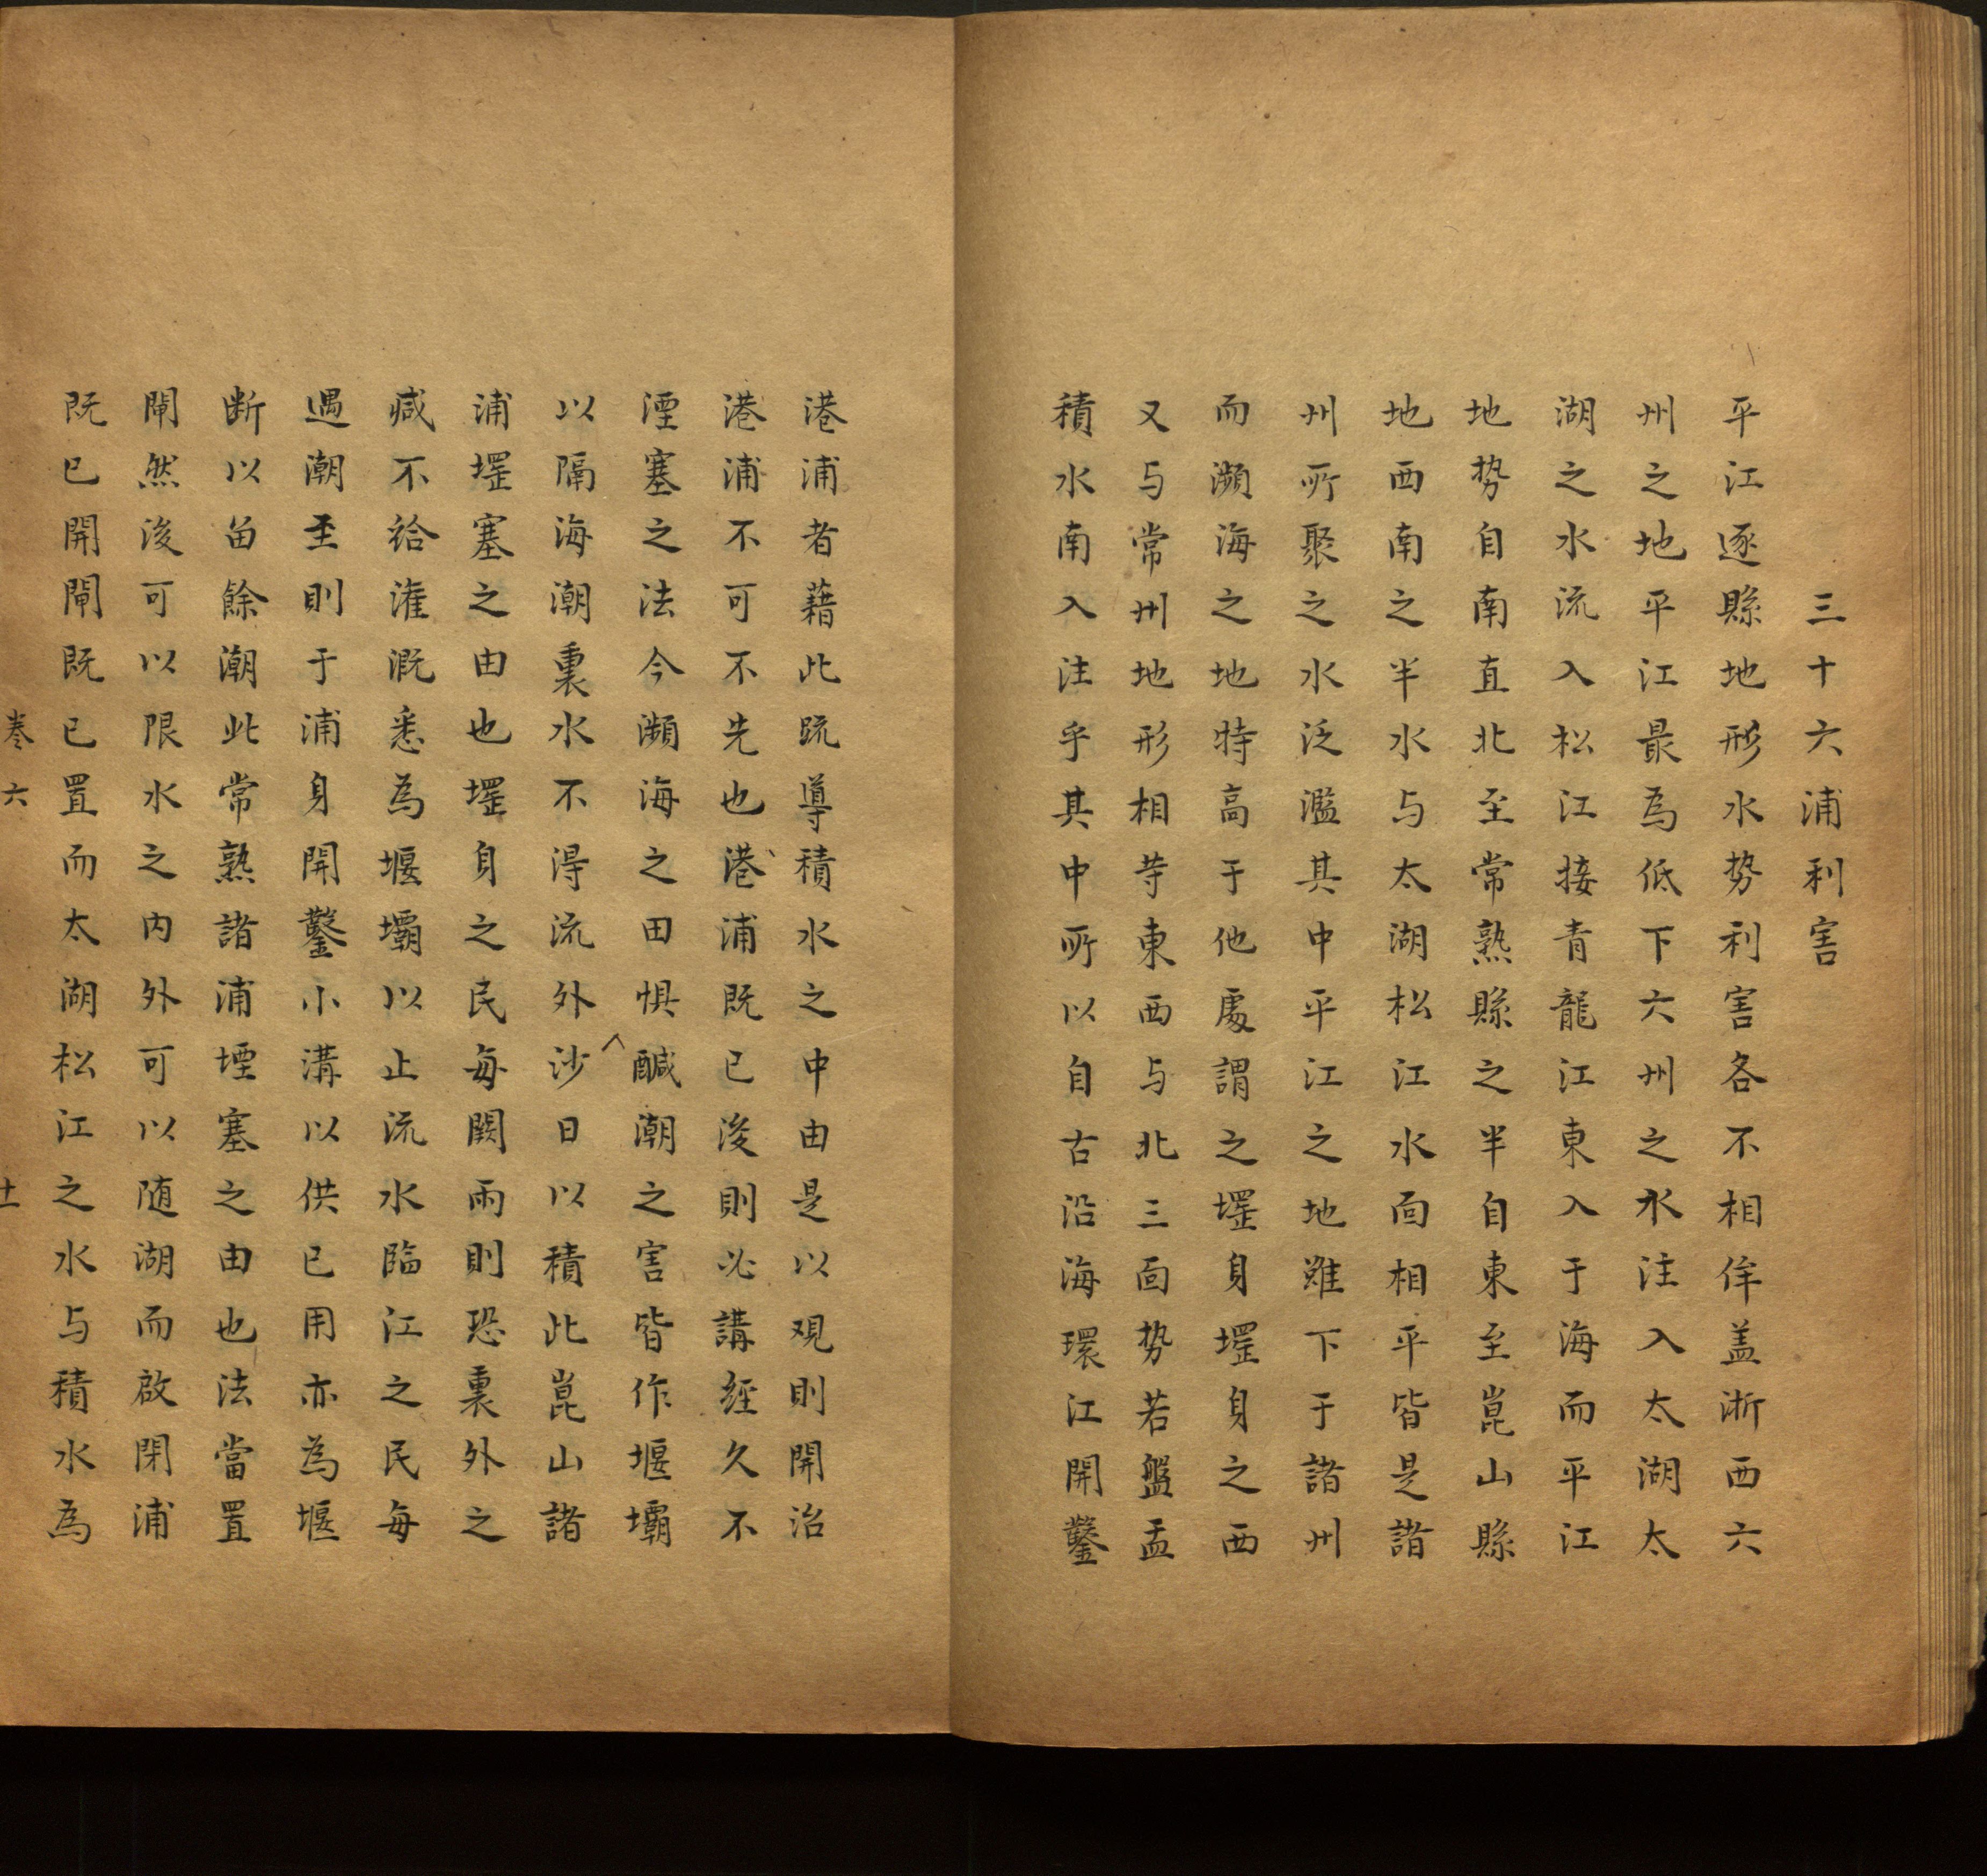 三十六浦利害
平江逐縣地形水势利害各不相侔盖淅西六
州之地平江最為低下六州之水注入太湖太
湖之水流入松江接青龍江東入于海而平江
地势自南直北至常熟縣之半自東至崑山縣
地西南之半水与太湖松江水面相平皆是諸
州所聚之水泛濫其中平江之地雖下于諸州
而瀕海之地特高于他處謂之堽身堽身之西
又与常州地形相等東西与北三面势若盤盂
積水南入注乎其中所以自古沿海環江開鑿
港浦者藉此䟽導積水之中由是以观則開治
港浦不可不先也港浦既已浚則必講經久不
湮塞之法今瀕海之田惧鹹潮之害皆作堰壩
以隔海潮裏水不得流外沙日以積此崑山諸
浦堽塞之由也堽身之民每闕雨則恐裏外之
减不給灌溉悉為堰壩以止流水臨江之民每
遇潮至則于浦身開鑿小溝以供已用亦為堰
断以畄餘潮此常熟諸浦堙塞之由也法當置
閘然後可以限水之内外可以随湖而啟閉浦
既已開閘既已置而太湖松江之水与積水為
卷六 十一